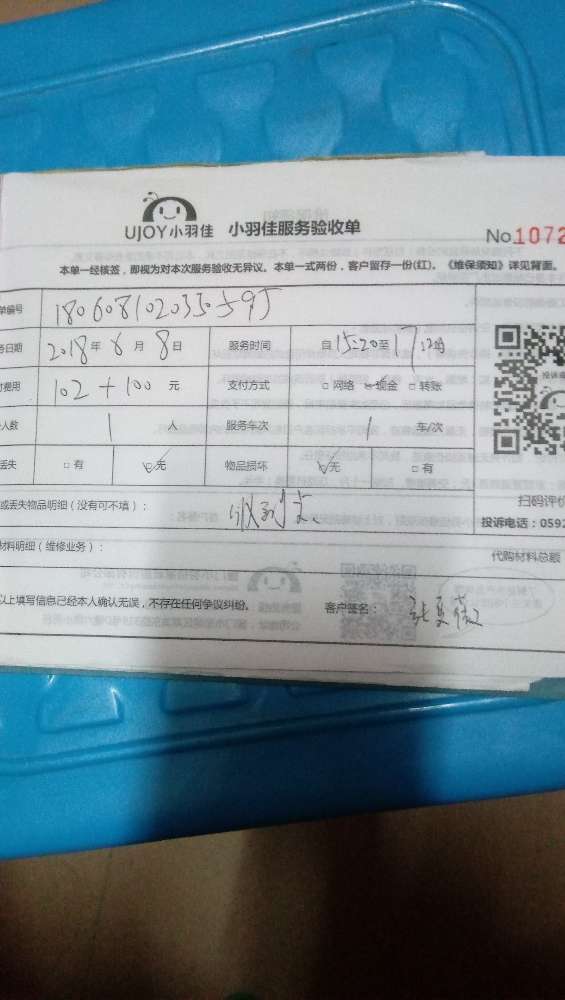 UJOY小羽佳 小羽佳服务验收单
No.1072
本单一经核签，即视为对本次服务验收无异议。本单一式两份，客户留存一份(红)。《维保须知》详见背面。
单编号 180608102035059
务日期 2018年6月8日 服务时间 自15:20至17
费用 102+100元 支付方式 □网络 ☑现金 □转账
人数 1人 服务车次 1车/次
丢失 □有 ☑无 物品损坏 ☑无 □有
扫码评价
或丢失物品明细（没有可不填）：
投诉电话：0592
材料明细（维修业务）：
代购材料总额
以上填写信息已经本人确认无误，不存在任何争议纠纷。 客户签名：